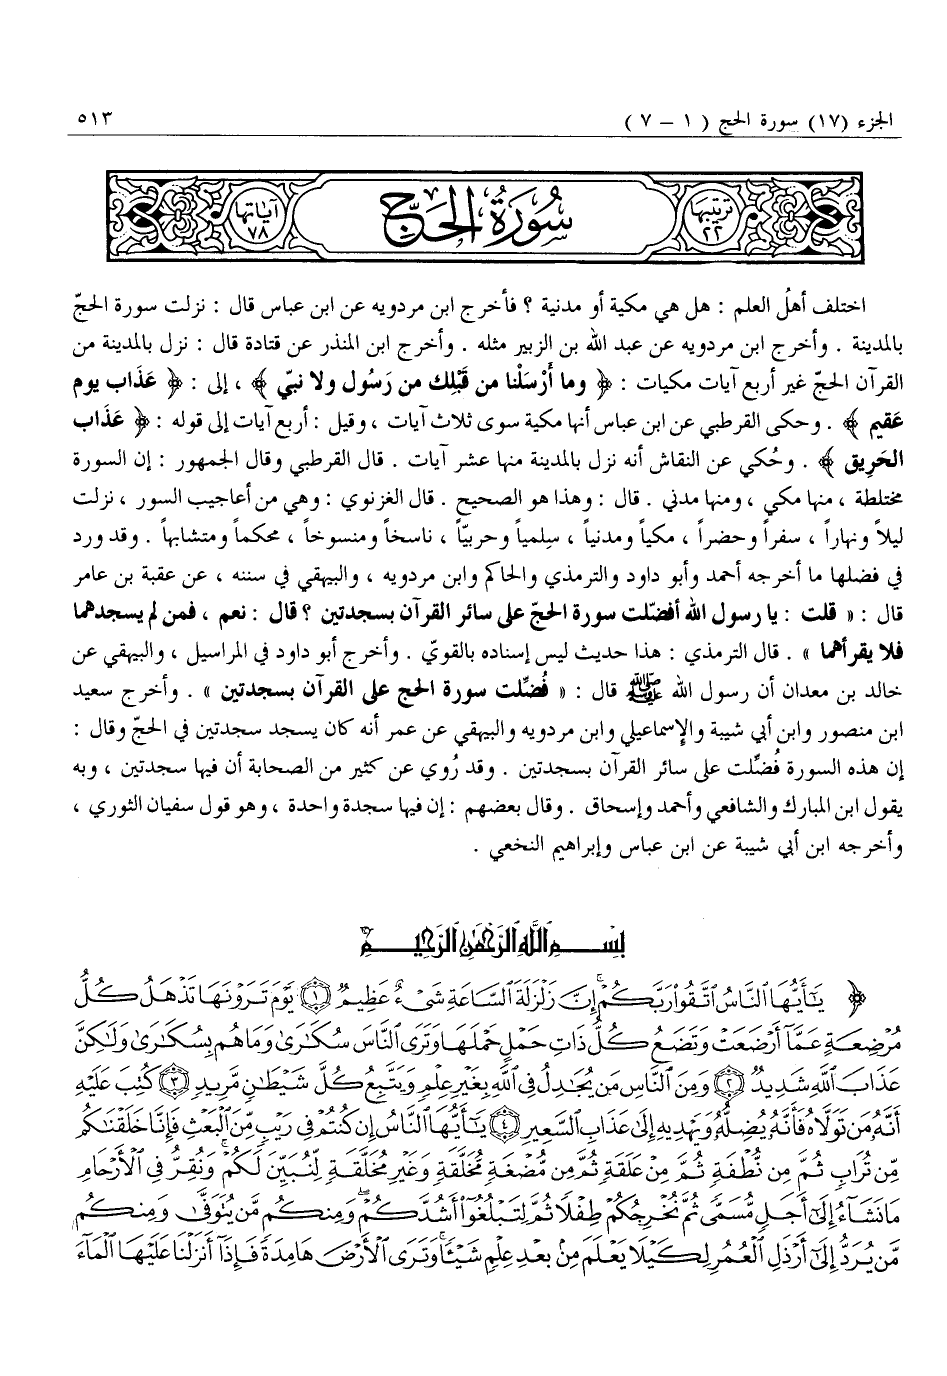 الجزء (١٧) سورة الحج ( ١ – ٧ ) ٥١٣
ترتيبها ٢٢ سُورَةُ الحَجِّ آياتها ٧٨
اختلف أهلُ العلم : هل هي مكية أو مدنية ؟ فأخرج ابن مردويه عن ابن عباس قال : نزلت سورة الحجّ
بالمدينة . وأخرج ابن مردويه عن عبد الله بن الزبير مثله . وأخرج ابن المنذر عن قتادة قال : نزل بالمدينة من
القرآن الحجّ غير أربع آيات مكيات : ﴿ وما أَرْسَلْنا من قَبْلِك من رَسُول ولا نبّي ﴾ ، إلى : ﴿ عَذَاب يوم
عَقيم ﴾ . وحكى القرطبي عن ابن عباس أنها مكية سوى ثلاث آيات ، وقيل : أربع آيات إلى قوله : ﴿ عَذَاب
الحَريق ﴾ . وحُكي عن النقاش أنه نزل بالمدينة منها عشر آيات . قال القرطبي وقال الجمهور : إن السورة
مختلطة ، منها مكي ، ومنها مدني . قال : وهذا هو الصحيح . قال الغزنوي : وهي من أعاجيب السور ، نزلت
ليلاً ونهاراً ، سفراً وحضراً ، مكياً ومدنياً ، سِلمياً وحربيّاً ، ناسخاً ومنسوخاً ، محكماً ومتشابهاً . وقد ورد
في فضلها ما أخرجه أحمد وأبو داود والترمذي والحاكم وابن مردويه ، والبيهقي في سننه ، عن عقبة بن عامر
قال : « قلت : يا رسول الله أفضّلت سورة الحجّ على سائر القرآن بسجدتين ؟ قال : نعم ، فمن لم يسجدهما
فلا يقرأهما » . قال الترمذي : هذا حديث ليس إسناده بالقويّ . وأخرج أبو داود في المراسيل ، والبيهقي عن
خالد بن معدان أن رسول الله ﷺ قال : « فُضِّلت سورة الحج على القرآن بسجدتين » . وأخرج سعيد
ابن منصور وابن أبي شيبة والإسماعيلي وابن مردويه والبيهقي عن عمر أنه كان يسجد سجدتين في الحجّ وقال :
إن هذه السورة فُضِّلت على سائر القرآن بسجدتين . وقد رُوي عن كثير من الصحابة أن فيها سجدتين ، وبه
يقول ابن المبارك والشافعي وأحمد وإسحاق . وقال بعضهم : إن فيها سجدة واحدة ، وهو قول سفيان الثوري ،
وأخرجه ابن أبي شيبة عن ابن عباس وإبراهيم النخعي .
بِسْمِ ٱللَّهِ ٱلرَّحْمَٰنِ ٱلرَّحِيمِ
﴿ يَٰٓأَيُّهَا ٱلنَّاسُ ٱتَّقُوا۟ رَبَّكُمْ ۚ إِنَّ زَلْزَلَةَ ٱلسَّاعَةِ شَىْءٌ عَظِيمٌ ۝١ يَوْمَ تَرَوْنَهَا تَذْهَلُ كُلُّ
مُرْضِعَةٍ عَمَّآ أَرْضَعَتْ وَتَضَعُ كُلُّ ذَاتِ حَمْلٍ حَمْلَهَا وَتَرَى ٱلنَّاسَ سُكَٰرَىٰ وَمَا هُم بِسُكَٰرَىٰ وَلَٰكِنَّ
عَذَابَ ٱللَّهِ شَدِيدٌ ۝٢ وَمِنَ ٱلنَّاسِ مَن يُجَٰدِلُ فِى ٱللَّهِ بِغَيْرِ عِلْمٍ وَيَتَّبِعُ كُلَّ شَيْطَٰنٍ مَّرِيدٍ ۝٣ كُتِبَ عَلَيْهِ
أَنَّهُۥ مَن تَوَلَّاهُ فَأَنَّهُۥ يُضِلُّهُۥ وَيَهْدِيهِ إِلَىٰ عَذَابِ ٱلسَّعِيرِ ۝٤ يَٰٓأَيُّهَا ٱلنَّاسُ إِن كُنتُمْ فِى رَيْبٍ مِّنَ ٱلْبَعْثِ فَإِنَّا خَلَقْنَٰكُم
مِّن تُرَابٍ ثُمَّ مِن نُّطْفَةٍ ثُمَّ مِنْ عَلَقَةٍ ثُمَّ مِن مُّضْغَةٍ مُّخَلَّقَةٍ وَغَيْرِ مُخَلَّقَةٍ لِّنُبَيِّنَ لَكُمْ ۚ وَنُقِرُّ فِى ٱلْأَرْحَامِ
مَا نَشَآءُ إِلَىٰٓ أَجَلٍ مُّسَمًّى ثُمَّ نُخْرِجُكُمْ طِفْلًا ثُمَّ لِتَبْلُغُوٓا۟ أَشُدَّكُمْ ۖ وَمِنكُم مَّن يُتَوَفَّىٰ وَمِنكُم
مَّن يُرَدُّ إِلَىٰٓ أَرْذَلِ ٱلْعُمُرِ لِكَيْلَا يَعْلَمَ مِنۢ بَعْدِ عِلْمٍ شَيْـًٔا ۚ وَتَرَى ٱلْأَرْضَ هَامِدَةً فَإِذَآ أَنزَلْنَا عَلَيْهَا ٱلْمَآءَ